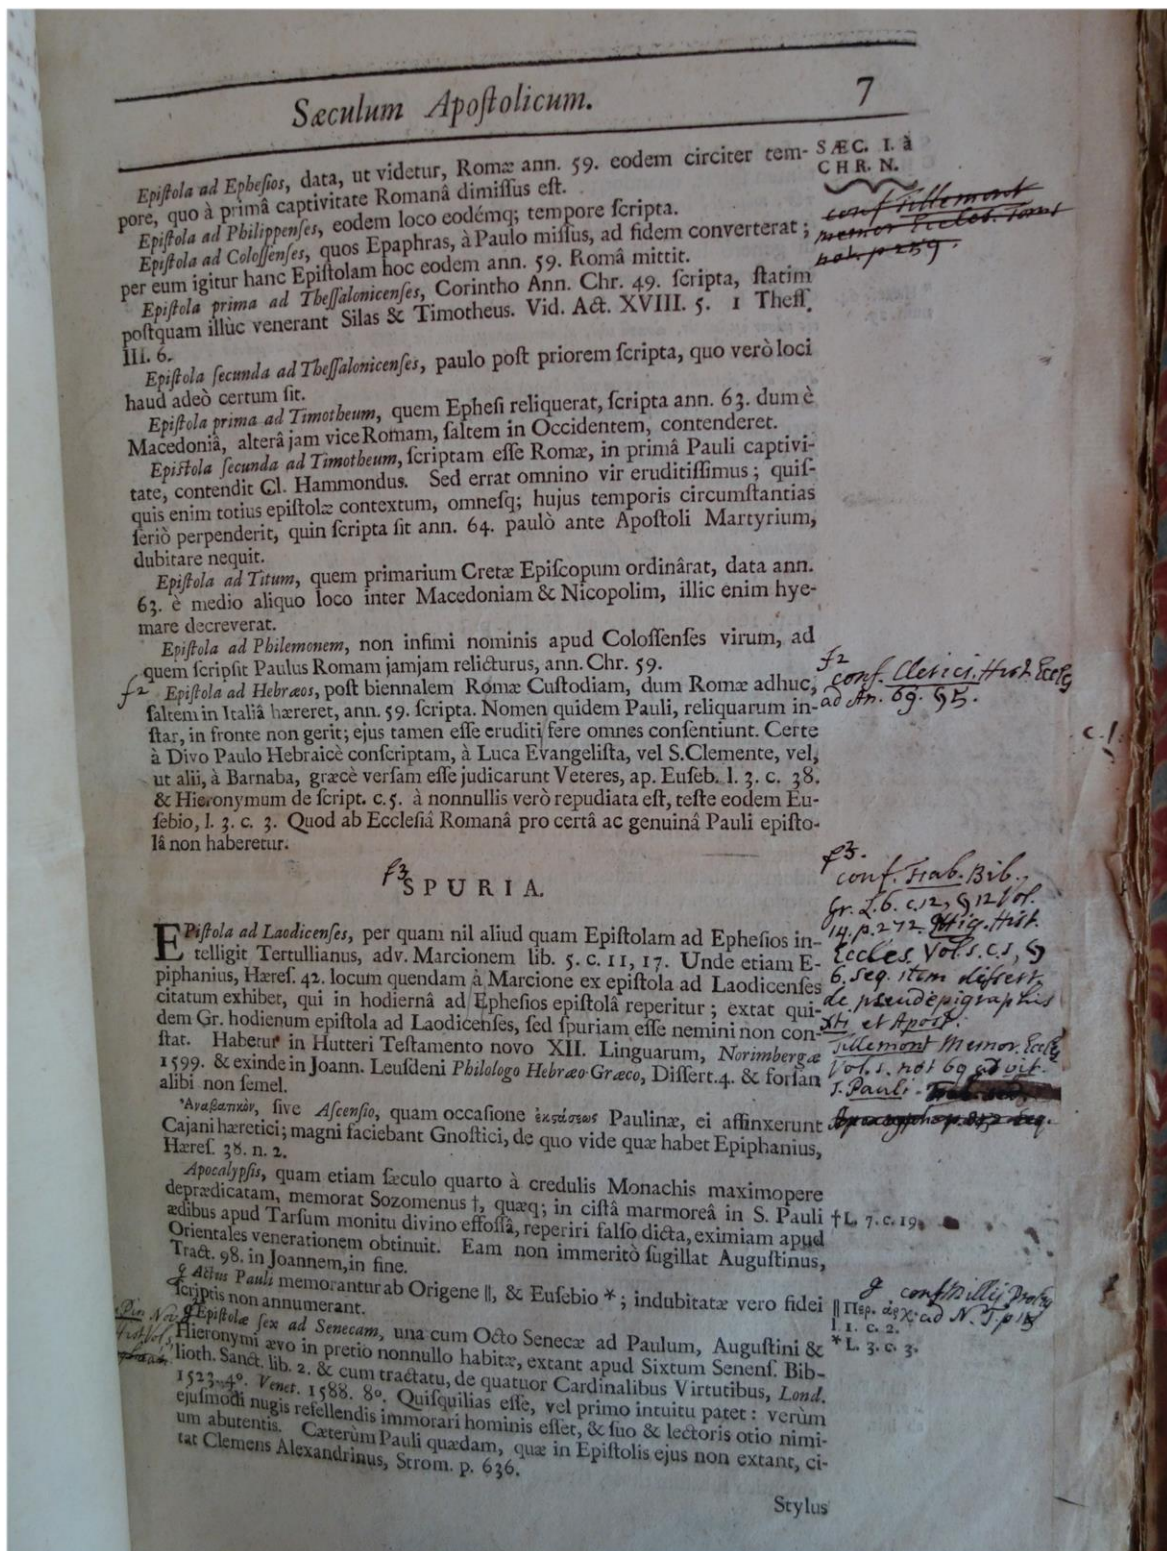 Sæculum Apoſtolicum.
7
SÆC. I. à
CHR. N.
Epiſtola ad Epheſios, data, ut videtur, Romæ ann. 59. eodem circiter tem-
pore, quo à primâ captivitate Romanâ dimiſſus eſt.
Epiſtola ad Philippenſes, eodem loco eodémq; tempore ſcripta.
Epiſtola ad Coloſſenſes, quos Epaphras, à Paulo miſſus, ad fidem converterat;
per eum igitur hanc Epiſtolam hoc eodem ann. 59. Româ mittit.
Epiſtola prima ad Theſſalonicenſes, Corintho Ann. Chr. 49. ſcripta, ſtatim
poſtquam illùc venerant Silas & Timotheus. Vid. Act. XVIII. 5. 1 Theſſ.
III. 6.
Epiſtola ſecunda ad Theſſalonicenſes, paulo poſt priorem ſcripta, quo verò loci
haud adeò certum ſit.
Epiſtola prima ad Timotheum, quem Epheſi reliquerat, ſcripta ann. 63. dum è
Macedoniâ, alterâ jam vice Romam, ſaltem in Occidentem, contenderet.
Epiſtola ſecunda ad Timotheum, ſcriptam eſſe Romæ, in primâ Pauli captivi-
tate, contendit Cl. Hammondus. Sed errat omnino vir eruditiſſimus; quiſ-
quis enim totius epiſtolæ contextum, omneſq; hujus temporis circumſtantias
ſeriò perpenderit, quin ſcripta ſit ann. 64. paulò ante Apoſtoli Martyrium,
dubitare nequit.
Epiſtola ad Titum, quem primarium Cretæ Epiſcopum ordinârat, data ann.
63. è medio aliquo loco inter Macedoniam & Nicopolim, illic enim hye-
mare decreverat.
Epiſtola ad Philemonem, non infimi nominis apud Coloſſenſes virum, ad
quem ſcripſit Paulus Romam jamjam relicturus, ann. Chr. 59.
f2 Epiſtola ad Hebræos, poſt biennalem Romæ Cuſtodiam, dum Romæ adhuc,
ſaltem in Italiâ hæreret, ann. 59. ſcripta. Nomen quidem Pauli, reliquarum in-
ſtar, in fronte non gerit; ejus tamen eſſe eruditi fere omnes conſentiunt. Certe
à Divo Paulo Hebraicè conſcriptam, à Luca Evangeliſta, vel S. Clemente, vel,
ut alii, à Barnaba, græcè verſam eſſe judicarunt Veteres, ap. Euſeb. l. 3. c. 38.
& Hieronymum de ſcript. c. 5. à nonnullis verò repudiata eſt, teſte eodem Eu-
ſebio, l. 3. c. 3. Quod ab Eccleſiâ Romanâ pro certâ ac genuinâ Pauli epiſto-
lâ non haberetur.
f2
conf. Clerici. Hist Eccles
ad An. 69. §5.
f3 SPURIA.
EPiſtola ad Laodicenſes, per quam nil aliud quam Epiſtolam ad Epheſios in-
telligit Tertullianus, adv. Marcionem lib. 5. c. 11, 17. Unde etiam E-
piphanius, Hæreſ. 42. locum quendam à Marcione ex epiſtola ad Laodicenſes
citatum exhibet, qui in hodiernâ ad Epheſios epiſtolâ reperitur; extat qui-
dem Gr. hodienum epiſtola ad Laodicenſes, ſed ſpuriam eſſe nemini non con-
ſtat. Habetur in Hutteri Teſtamento novo XII. Linguarum, Norimbergæ
1599. & exinde in Joann. Leuſdeni Philologo Hebræo-Græco, Diſſert. 4. & forſan
alibi non ſemel.
Ἀναβατικὸν, ſive Aſcenſio, quam occaſione ἐκστάσεως Paulinæ, ei affinxerunt
Cajani hæretici; magni faciebant Gnoſtici, de quo vide quæ habet Epiphanius,
Hæreſ. 38. n. 2.
Apocalypſis, quam etiam ſæculo quarto à credulis Monachis maximopere
deprædicatam, memorat Sozomenus †, quæq; in ciſtâ marmoreâ in S. Pauli
ædibus apud Tarſum monitu divino effoſſâ, reperiri falſo dicta, eximiam apud
Orientales venerationem obtinuit. Eam non immeritò ſugillat Auguſtinus,
Tract. 98. in Joannem, in fine.
g Actus Pauli memorantur ab Origene ||, & Euſebio *; indubitatæ vero fidei
ſcriptis non annumerant.
Epiſtolæ ſex ad Senecam, una cum Octo Senecæ ad Paulum, Auguſtini &
Hieronymi ævo in pretio nonnullo habitæ, extant apud Sixtum Senenſ. Bib-
lioth. Sanct. lib. 2. & cum tractatu, de quatuor Cardinalibus Virtutibus, Lond.
1523. 4º. Venet. 1588. 8º. Quiſquilias eſſe, vel primo intuitu patet: verùm
ejuſmodi nugis refellendis immorari hominis eſſet, & ſuo & lectoris otio nimi-
um abutentis. Cæterùm Pauli quædam, quæ in Epiſtolis ejus non extant, ci-
tat Clemens Alexandrinus, Strom. p. 636.
f3.
conf. Fab. Bib.
Gr. L. 6. c. 12, § 12 Vol.
14. p. 272. Ittig. Hist.
Eccles. Vol. 1. c. 1, §
6. seq. item dissert.
de pseudepigraphis
Xti et Apost.
Tillemont Memor. Eccles
Vol. 1. not 69 ad vit.
S. Pauli.
† L. 7. c. 19.
g conf Millij
ad N. T. p
|| Περ. ἀρχ.
l. 1. c. 2.
* L. 3. c. 3.
Stylus